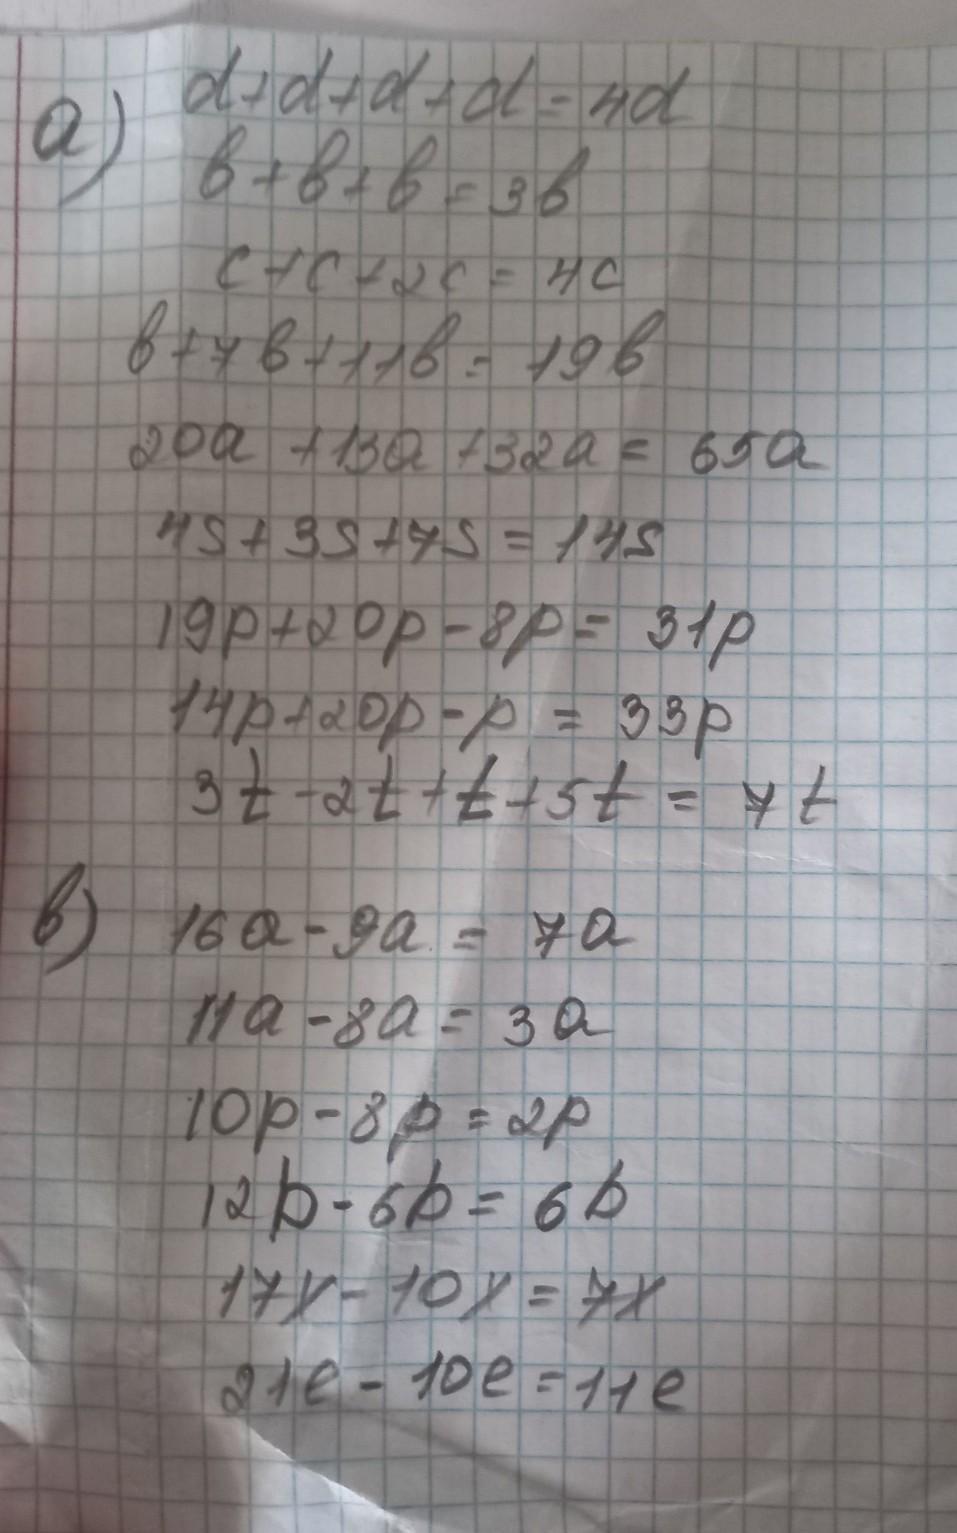 a) d+d+d+d=4d
b+b+b=3b
c+c+2c=4c
b+7b+11b=19b
20a+13a+32a=65a
4s+3s+7s=14s
19p+20p-8p=31p
14p+20p-p=33p
3t-2t+t+5t=7t
b) 16a-9a=7a
11a-8a=3a
10p-8p=2p
12b-6b=6b
17x-10x=7x
21e-10e=11e